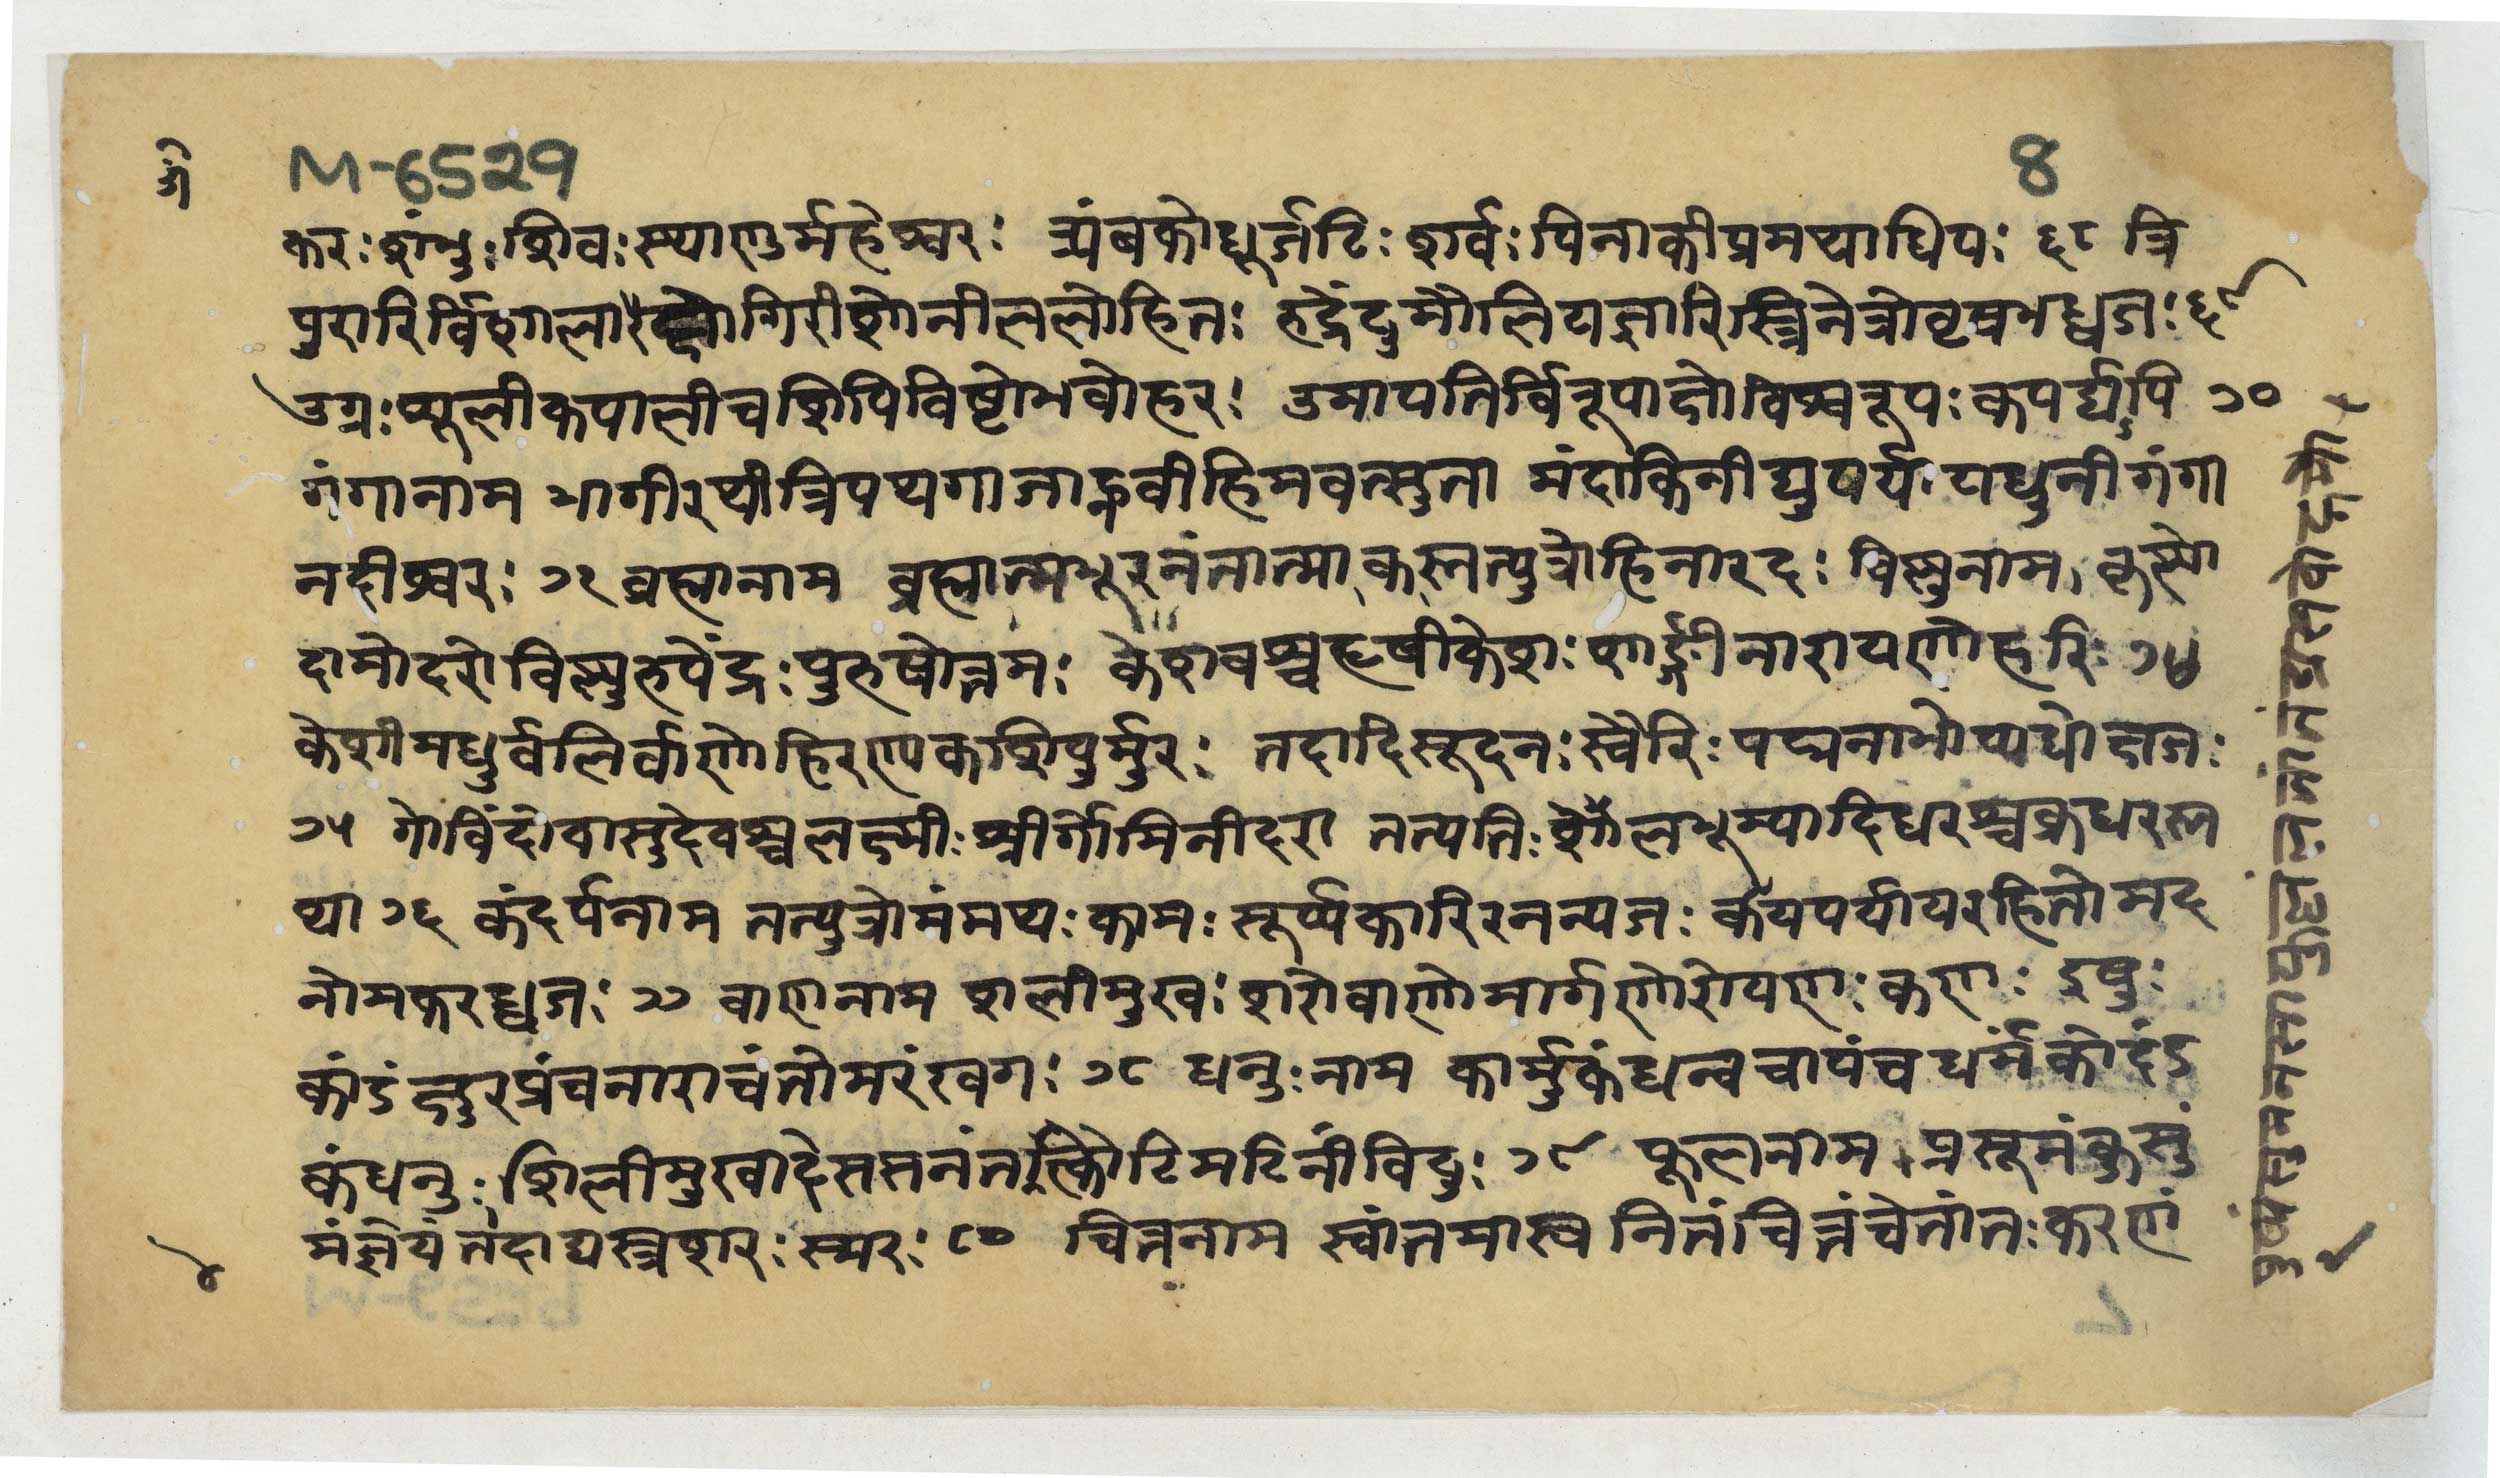 M-6529
8
करः शंभुः शिवः स्थाणुर्महेश्वरः त्र्यंबकोधूर्जटिः शर्वः पिनाकीप्रमथाधिपः ६८ त्रि
पुरारिर्विशाला गिरीशोनीललोहितः रुद्रेंदुमौलियज्ञारिस्त्रिनेत्रोवृषभध्वजः ६९
उग्रः शूलीकपालीचशिपिविष्टोभवोहरः उमापतिर्विरूपाक्षोविश्वरूपः कपर्द्यपि ७०
गंगानाम भागीरथीत्रिपथगाजाह्नवीहिमवत्सुता मंदाकिनीद्युपर्या याधुनीगंगा
नदीश्वरः ७१ ब्रह्मानाम ब्रह्मात्मभूरनंतात्मा कस्तत्पुत्रोहिनारदः विष्णुनाम कृष्णो
दामोदरोविष्णुरुपेंद्रः पुरुषोत्तमः केशवश्चहृषीकेशः शार्ङ्गीनारायणोहरिः ७४
केशीमधुर्बलिर्बाणोहिरण्यकशिपुर्मुरः तदादिसूदनः स्वैरिः पद्मनाभोप्यधोक्षजः
७५ गोविंदोवासुदेवश्चलक्ष्मीः श्रीर्गोमिनीदरा तत्पतिः शैलभूम्यादिधरश्चक्रधरस्त
था ७६ कंदर्पनाम तत्पुत्रोमंमथः कामः सूर्प्पकारिरनन्यजः कायपर्यायरहितोमद
नोमकरध्वजः ७७ बाणनाम शलीमुखः शरोबाणोमार्गणोरोपणः कणः इषुः
कांडंक्षुरप्रंचनाराचंतोमरंखगः ७८ धनुःनाम कार्मुकंधन्वचापंचधर्मंकोदंड
कंधनुः शिलीमुखादेरसनंतत्कोटिमटिनींविदुः ७९ फूलनाम प्रसूनंकुसु
मंज्ञेयंतदाद्यस्त्रशरः स्मरः ८० चित्तनाम स्वांतमास्वनितंचित्तंचेतोंतःकरणं
४
पुष्पंसुमनसा